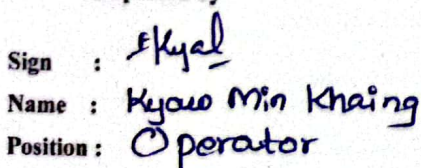 Sign :
Name : Kyaw Min Khaing
Position : Operator